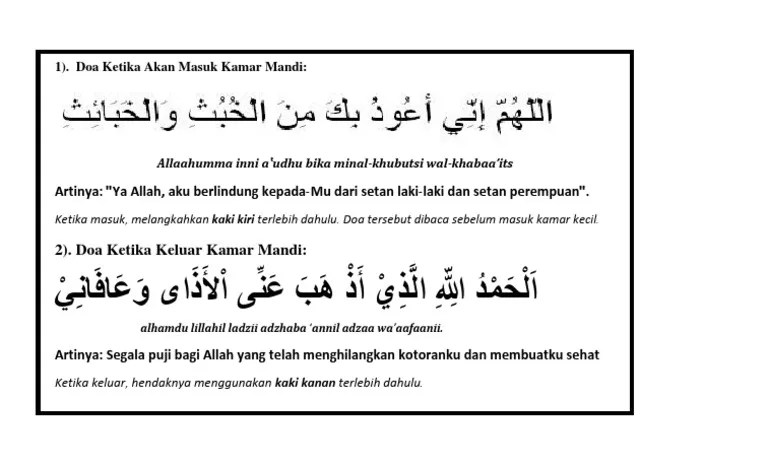 1). Doa Ketika Akan Masuk Kamar Mandi:
اللّهُمّ إِنّي أَعُوذُ بِكَ مِنَ الْخُبُثِ وَالْخَبَائِثِ
Allaahumma inni a'udhu bika minal-khubutsi wal-khabaa'its
Artinya: "Ya Allah, aku berlindung kepada-Mu dari setan laki-laki dan setan perempuan".
Ketika masuk, melangkahkan kaki kiri terlebih dahulu. Doa tersebut dibaca sebelum masuk kamar kecil.
2). Doa Ketika Keluar Kamar Mandi:
اَلْحَمْدُ اللِّهِ الَّذِيْ أَذْ هَبَ عَنِّى اْلأَذَاى وَعَافَانِيْ
alhamdu lillahil ladzii adzhaba 'annil adzaa wa'aafaanii.
Artinya: Segala puji bagi Allah yang telah menghilangkan kotoranku dan membuatku sehat
Ketika keluar, hendaknya menggunakan kaki kanan terlebih dahulu.